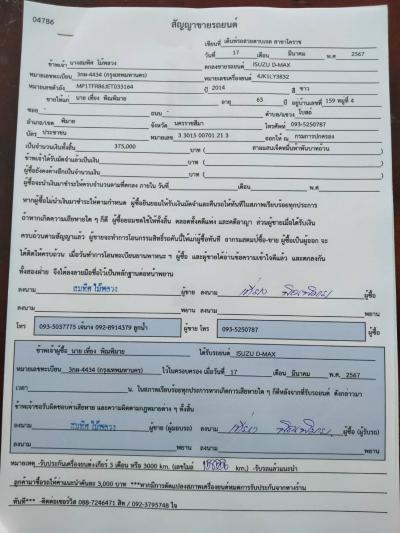 04786
สัญญาขายรถยนต์
เขียนที่ เต็นท์รถสวยตามเจต สาขาโคราช
วันที่ 17 เดือน มีนาคม พ.ศ. 2567
ข้าพเจ้า นางสมทิศ ไม้พลวง ตกลงขายรถยนต์ ISUZU D-MAX
หมายเลขทะเบียน 3ฒค-4434 (กรุงเทพมหานคร) หมายเลขเครื่องยนต์ 4JK1LY3832
หมายเลขตัวถัง MP1TFR86JET033164 ปี 2014 สี ขาว
ขายให้แก่ นาย เที่ยง พิณพิมาย อายุ 63 ปี อยู่บ้านเลขที่ 159 หมู่ที่ 4
ซอย - ถนน - ตำบล/แขวง โบสถ์
อำเภอ/เขต พิมาย จังหวัด นครราชสีมา โทรศัพท์ 093-5250787
บัตร ประชาชน หมายเลข 3 3015 00701 21 3 ออกให้ ณ กรมการปกครอง
เป็นจำนวนเงินทั้งสิ้น 375,000 บาท ( สามแสนเจ็ดหมื่นห้าพันบาทถ้วน )
ข้าพเจ้าได้รับมัดจำแล้วเป็นเงิน บาท ( )
ผู้ซื้อยังคงค้างอีกเป็นจำนวนเงิน บาท ( )
ผู้ซื้อจะนำเงินมาชำระให้ครบจำนวนตามที่ตกลง ภายใน วันที่ เดือน พ.ศ
หากผู้ซื้อไม่นำเงินมาชำระให้ตามกำหนด ผู้ซื้อยินยอมให้ริบเงินมัดจำและคืนรถให้ทันทีในสภาพเรียบร้อยทุกประการ
ถ้าหากเกิดความเสียหายใด ๆ ก็ดี ผู้ซื้อยอมชดใช้ให้ทั้งสิ้น ตลอดทั้งคดีแพ่ง และคดีอาญา ส่วนผู้ขายเมื่อได้รับเงิน
ครบถ้วนตามสัญญาแล้ว ผู้ขายจะทำการโอนกรรมสิทธิ์รถคันนี้ให้แก่ผู้ซื้อทันที อากรแสตมป์ซื้อ-ขาย ผู้ซื้อเป็นผู้ออก จะ
ได้คิดให้ครบถ้วน เมื่อวันทำการโอนทะเบียนยานพาหนะ ฯ ผู้ซื้อ และผู้ขายได้อ่านข้อความเข้าใจดีแล้ว และตกลงกัน
ทั้งสองฝ่าย จึงได้ลงลายมือชื่อไว้เป็นหลักฐานต่อหน้าพยาน
ลงนาม สมทิศ ไม้พลวง ผู้ขาย ลงนาม เที่ยง พิณพิมาย ผู้ซื้อ
ลงนาม พยาน ลงนาม พยาน
โทร 093-5037775 เจ๊นาง 092-8914379 ลูกน้ำ ผู้ขาย โทร 093-5250787 ผู้ซื้อ
ข้าพเจ้าผู้ซื้อ นาย เที่ยง พิณพิมาย ได้รับรถยนต์ ISUZU D-MAX
หมายเลขทะเบียน 3ฒค-4434 (กรุงเทพมหานคร) ไว้ในครอบครอง เมื่อวันที่ 17 เดือน มีนาคม พ.ศ. 2567
เวลา น. ในสภาพเรียบร้อยทุกประการหากเกิดการเสียหายใด ๆ ก็ดีหลังจากที่รับรถยนต์ ดังกล่าวมา
ข้าพเจ้าขอรับผิดชอบค่าเสียหาย และความผิดตามกฎหมายต่าง ๆ ทั้งสิ้น
ลงนาม สมทิศ ไม้พลวง ผู้ขาย (ผู้มอบรถ) ลงนาม เที่ยง พิณพิมาย ผู้ซื้อ (ผู้รับรถ)
ลงนาม พยาน ลงนาม พยาน
หมายเหตุ -รับประกันเครื่องยนต์+เกียร์ 3 เดือน หรือ 3000 km. (เลขไมล์ km.) -รับรถแล้วแนะนำ
ลูกค้ามาซื้อรถให้ค่าแนะนำคันละ 3,000 บาท ***หากมีการดัดแปลงสภาพเครื่องยนต์หมดการรับประกันจากทางร้าน
ทันที*** -ติดต่อเซอร์วิส 088-7246471 สิท / 092-3795748 ใจ